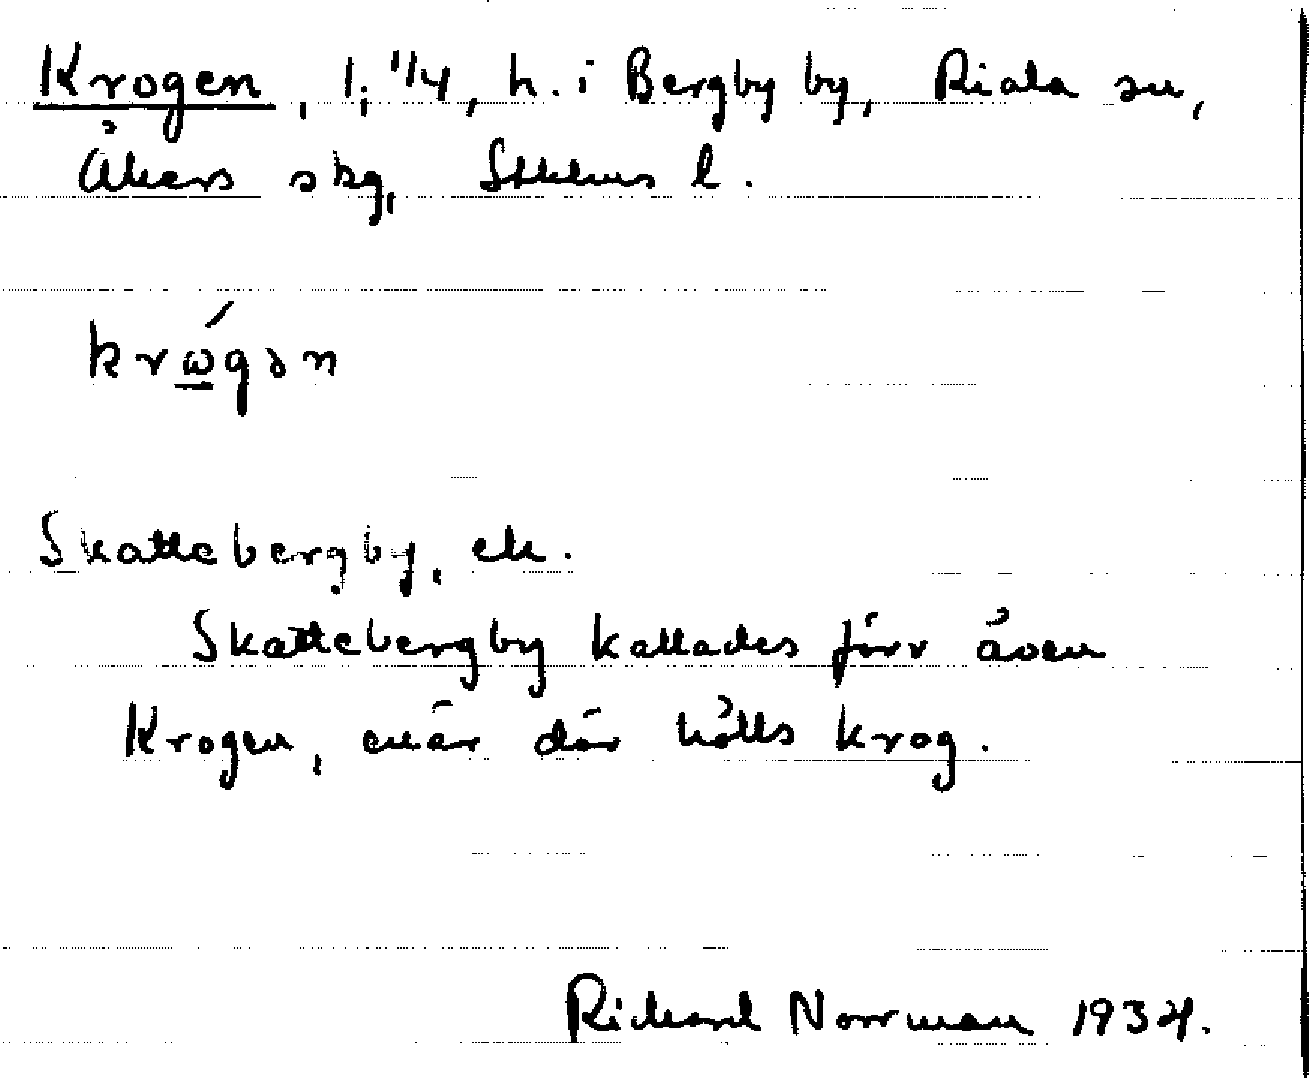 Krogen, 1, 1/4, h. i Bergby by, Riala sn,
Åkers skg, Sthlms l.
krώ̲gən
Skattebergby, ek.
Skattebergby kallades förr även
Krogen, enär där hölls krog.
Richard Norrman 1934.